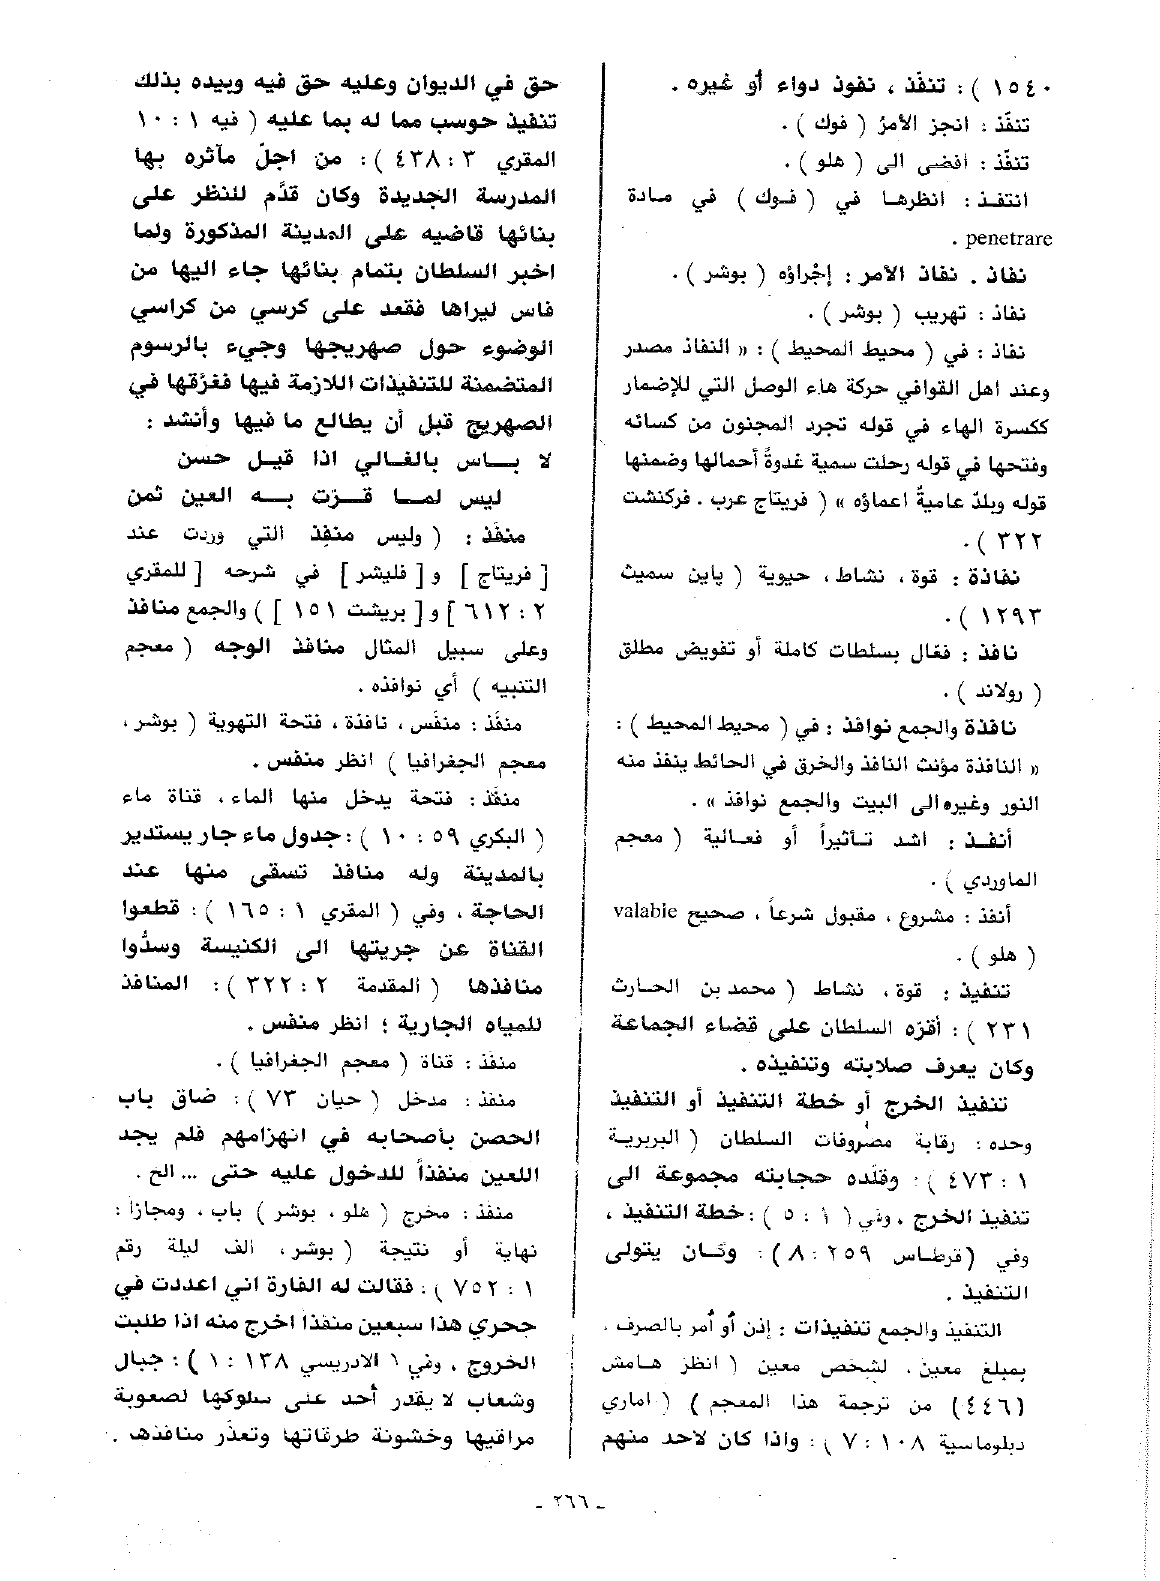 ١٥٤٠ ) : تنفّذ ، نفوذ دواء أو غيره .
تنفّذ : انجز الأمرَ ( فوك ) .
تنفّذ : افضى الى ( هلو ) .
انتفـذ : انظرهـا في ( فـوك ) في مـادة
penetrare .
نفاذ . نفاذ الأمر : إجْراؤه ( بوشر ) .
نفاذ : تهريب ( بوشر ) .
نفاذ : في ( محيط المحيط ) : « النفاذ مصدر
وعند اهل القوافي حركة هاء الوصل التي للإضمار
ككسرة الهاء في قوله تجرد المجنون من كسائه
وفتحها في قوله رحلت سمية غدوةً أحمالها وضمنها
قوله وبلدٌ عاميةٌ اعماؤه » ( فريتاج عرب . فركنشت
٣٢٢ ) .
نفاذة : قوة ، نشاط ، حيوية ( پاين سميث
١٢٩٣ ) .
نافذ : فعّال بسلطات كاملة أو تفويض مطلق
( رولاند ) .
نافذة والجمع نوافذ : في ( محيط المحيط ) :
« النافذة مؤنث النافذ والخرق في الحائط ينفذ منه
النور وغيره الى البيت والجمع نوافذ » .
أنفـذ : اشد تـأثيراً أو فعـالية ( معجم
الماوردي ) .
أنفذ : مشروع ، مقبول شرعاً ، صحيح valabie
( هلو ) .
تنفيذ : قوة ، نشاط ( محمد بن الحـارث
٢٣١ ) : أقرّه السلطان على قضاء الجماعة
وكان يعرف صلابته وتنفيذه .
تنفيذ الخرج أو خطة التنفيذ أو التنفيذ
وحده : رقابة مصروفات السلطان ( البربرية
١ : ٤٧٣ ) : وقلّده حجابته مجموعة الى
تنفيذ الخرج ، وفي ( ١ : ٥ ) : خطة التنفيذ ،
وفي ( قرطـاس ٢٥٩ : ٨ ) : وكـان يتولى
التنفيذ .
التنفيذ والجمع تنفيذات : إذن أو أمر بالصرف ،
بمبلغ معين ، لشخص معين ( انظر هـامش
(٤٤٦) من ترجمة هذا المعجم ) ( اماري
دبلوماسية ١٠٨ : ٧ ) : واذا كان لأحد منهم
حق في الديوان وعليه حق فيه وبيده بذلك
تنفيذ حوسب مما له بما عليه ( فيه ١ : ١٠
المقري ٣ : ٤٣٨ ) : من اجلّ مآثره بها
المدرسة الجديدة وكان قدَّم للنظر على
بنائها قاضيه على المدينة المذكورة ولما
اخبر السلطان بتمام بنائها جاء اليها من
فاس ليراها فقعد على كرسي من كراسي
الوضوء حول صهريجها وجيء بالرسوم
المتضمنة للتنفيذات اللازمة فيها فغرّقها في
الصهريج قبل أن يطالع ما فيها وأنشد :
لا بـأس بالغـالي اذا قيـل حسن
ليس لمـا قـرّت بـه العين ثمن
منفّذ : ( وليس منفِذ التي وردت عند
[ فريتاج ] و [ فليشر ] في شرحه [ للمقري
٢ : ٦١٢ ] و [ بريشت ١٥١ ] ) والجمع منافذ
وعلى سبيل المثال منافذ الوجه ( معجم
التنبيه ) أي نوافذه .
منفَذ : منفَس ، نافذة ، فتحة التهوية ( بوشر ،
معجم الجغرافيا ) انظر منفس .
منفَذ : فتحة يدخل منها الماء ، قناة ماء
( البكري ٥٩ : ١٠ ) : جدول ماء جار يستدير
بالمدينة وله منافذ تسقى منها عند
الحاجة ، وفي ( المقري ١ : ١٦٥ ) : قطعوا
القناة عن جريتها الى الكنيسة وسدُّوا
منافذها ( المقدمة ٢ : ٣٢٢ ) : المنافذ
للمياه الجارية ؛ انظر منفس .
منفَذ : قناة ( معجم الجغرافيا ) .
منفذ : مدخل ( حيان ٧٣ ) : ضاق باب
الحصن بأصحابه في انهزامهم فلم يجد
اللعين منفذاً للدخول عليه حتى ... الخ .
منفَذ : مخرج ( هلو ، بوشر ) باب ، ومجازا :
نهاية أو نتيجة ( بوشر ، الف ليلة رقم
١ : ٧٥٢ ) : فقالت له الفارة اني اعددت في
جحري هذا سبعين منفذا اخرج منه اذا طلبت
الخروج ، وفي ( الادريسي ١٣٨ : ١ ) : جبال
وشعاب لا يقدر أحد على سلوكها لصعوبة
مراقيها وخشونة طرقاتها وتعذّر منافذها .
- ٢٦٦ -